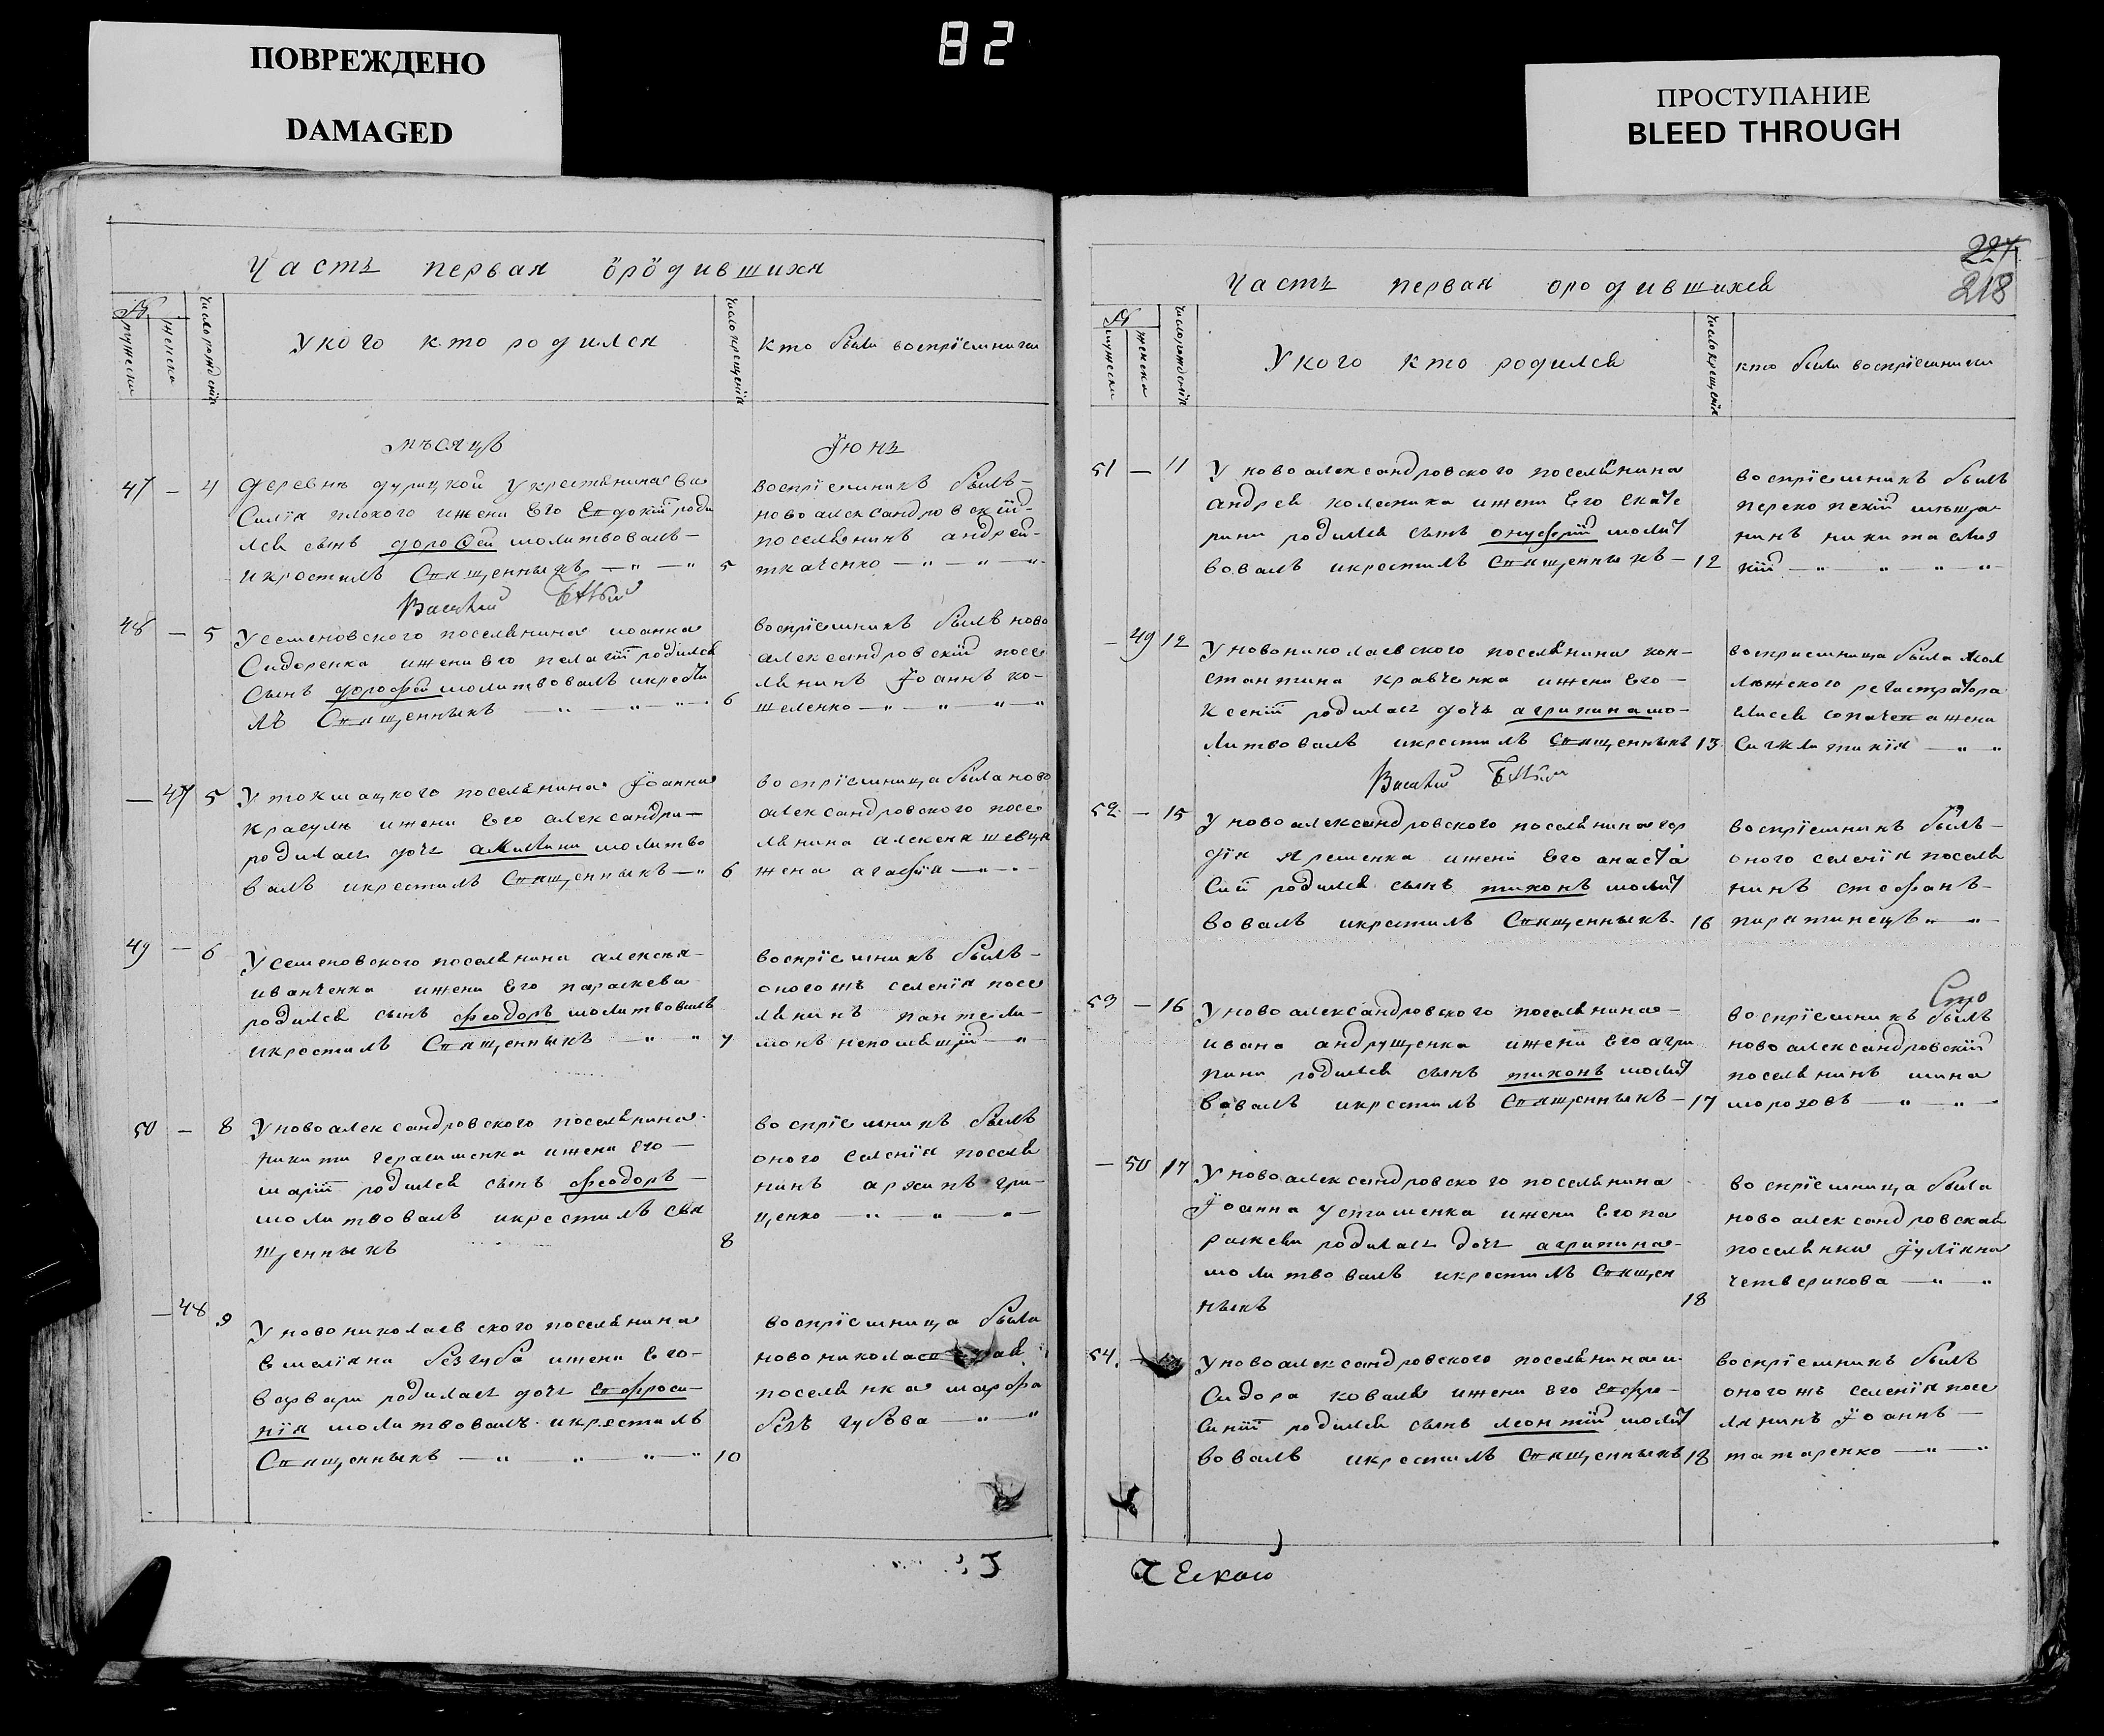 ПОВРЕЖДЕНО
DAMAGED
82
ПРОСТУПАНИЕ
BLEED THROUGH
Часть первая ородившихя
№
мужеска
женска
число рожденія
У кого кто родился
число крещенія
кто были воспріемники
мѣсяцъ Іюнь
47 — 4
деревнѣ дурицкой укрестьянина ва
силія плохого ижени Его Евдокіи роди
лся сынъ дороѳей молитвовалъ —
икрестилъ Священникъ — " — " 5
воспріемникъ былъ —
новоалександровскій —
поселянинъ андрей —
ткаченко — " — " — "
48 — 5
У семеновского поселянина иоанна
Сидоренка ижени Его пелагіи родился
сынъ дорофей молитвовалъ икрести
лъ Священникъ — " — " — " 6
воспріемникъ былъ ново
александровскій посе
лянинъ Іоаннъ ко-
шеленко — " — " — "
— 47 5
У токмацкого поселянина Іоанна
красули ижени Его александри —
родилась дочь акилина молитво
валъ икрестилъ Священникъ — " 6
воспріемница была ново
александровского посе
лянина алексея шевця
жена агафія — " —
49 — 6
У семеновского поселянина алексѣя —
иванченка ижени Его параскеви
родился сынъ феодоръ молитвовалъ
икрестилъ Священникъ — " — " 7
воспріемникъ былъ —
оногожъ селенія посе
лянинъ пантели-
монъ непомнящій — " —
50 — 8
У новоалександровского поселянина
никити герасименка ижени Его —
маріи родился сынъ феодоръ —
молитвовалъ икрестилъ свя
щенникъ 8
воспріемникъ былъ
оного селенія поселя
нинъ архипъ гри-
ценко — " — " — " —
— 48 9
У новониколаевского поселянина
Емеліяна безгуба ижени Его —
варвари родилась дочь Евфроси-
нія молитвовалъ икрестилъ
Священникъ — " — " — " 10
воспріемница была
поселянка марфа
безъ губова " — "
227
218
Часть первая ородившихся
№
мужеска
женска
число рожденія
У кого кто родился
число крещенія
кто были воспріемники
51 — 11
У новоалександровского поселянина
андрея колесника ижени Его екате
рини родился сынъ онуфрій молит
вовалъ икрестилъ Священникъ — 12
воспріемникъ былъ
перекопскій мѣща-
нинъ никита
кій — " " " "
— 49 12
У новониколаевского поселянина кон-
стантина кравченка ижени Его —
Ксеніи родилась дочь агрипина мо-
литвовалъ икрестилъ Священникъ 13
воспріемница была
регистратора
Елисея жена
Сигклитикія — " "
52 — 15
У новоалександровского поселянина гор
дія яременка ижени Его анаста
сіи родился сынъ тихонъ молит
вовалъ икрестилъ Священникъ 16
воспріемникъ былъ —
оного селенія поселя
нинъ стефанъ —
пирятинецъ " — "
53 — 16
У новоалександровского поселянина —
ивана андрущенка ижени Его агри
пини родился сынъ тихонъ молит
вовалъ икрестилъ Священникъ — 17
воспріемникъ былъ
новоалександровскій
поселянинъ мина
морозовъ — " — "
— 50 17
У новоалександровского поселянина
Іоанна устименка ижени Его па
раскеви родилась дочь агрипина —
молитвовалъ икрестилъ Священ
никъ 18
воспріемница была
новоалександровская
поселянка Іуліяна
четверикова — " — "
54 —
У новоалександровского поселянина и
сидора коваля ижени Его Евфро-
синіи родился сынъ леонтій молит
вовалъ икрестилъ Священникъ 18
воспріемникъ былъ
оногожъ селенія посе
лянинъ Іоаннъ —
татаренко — " — "
ческой